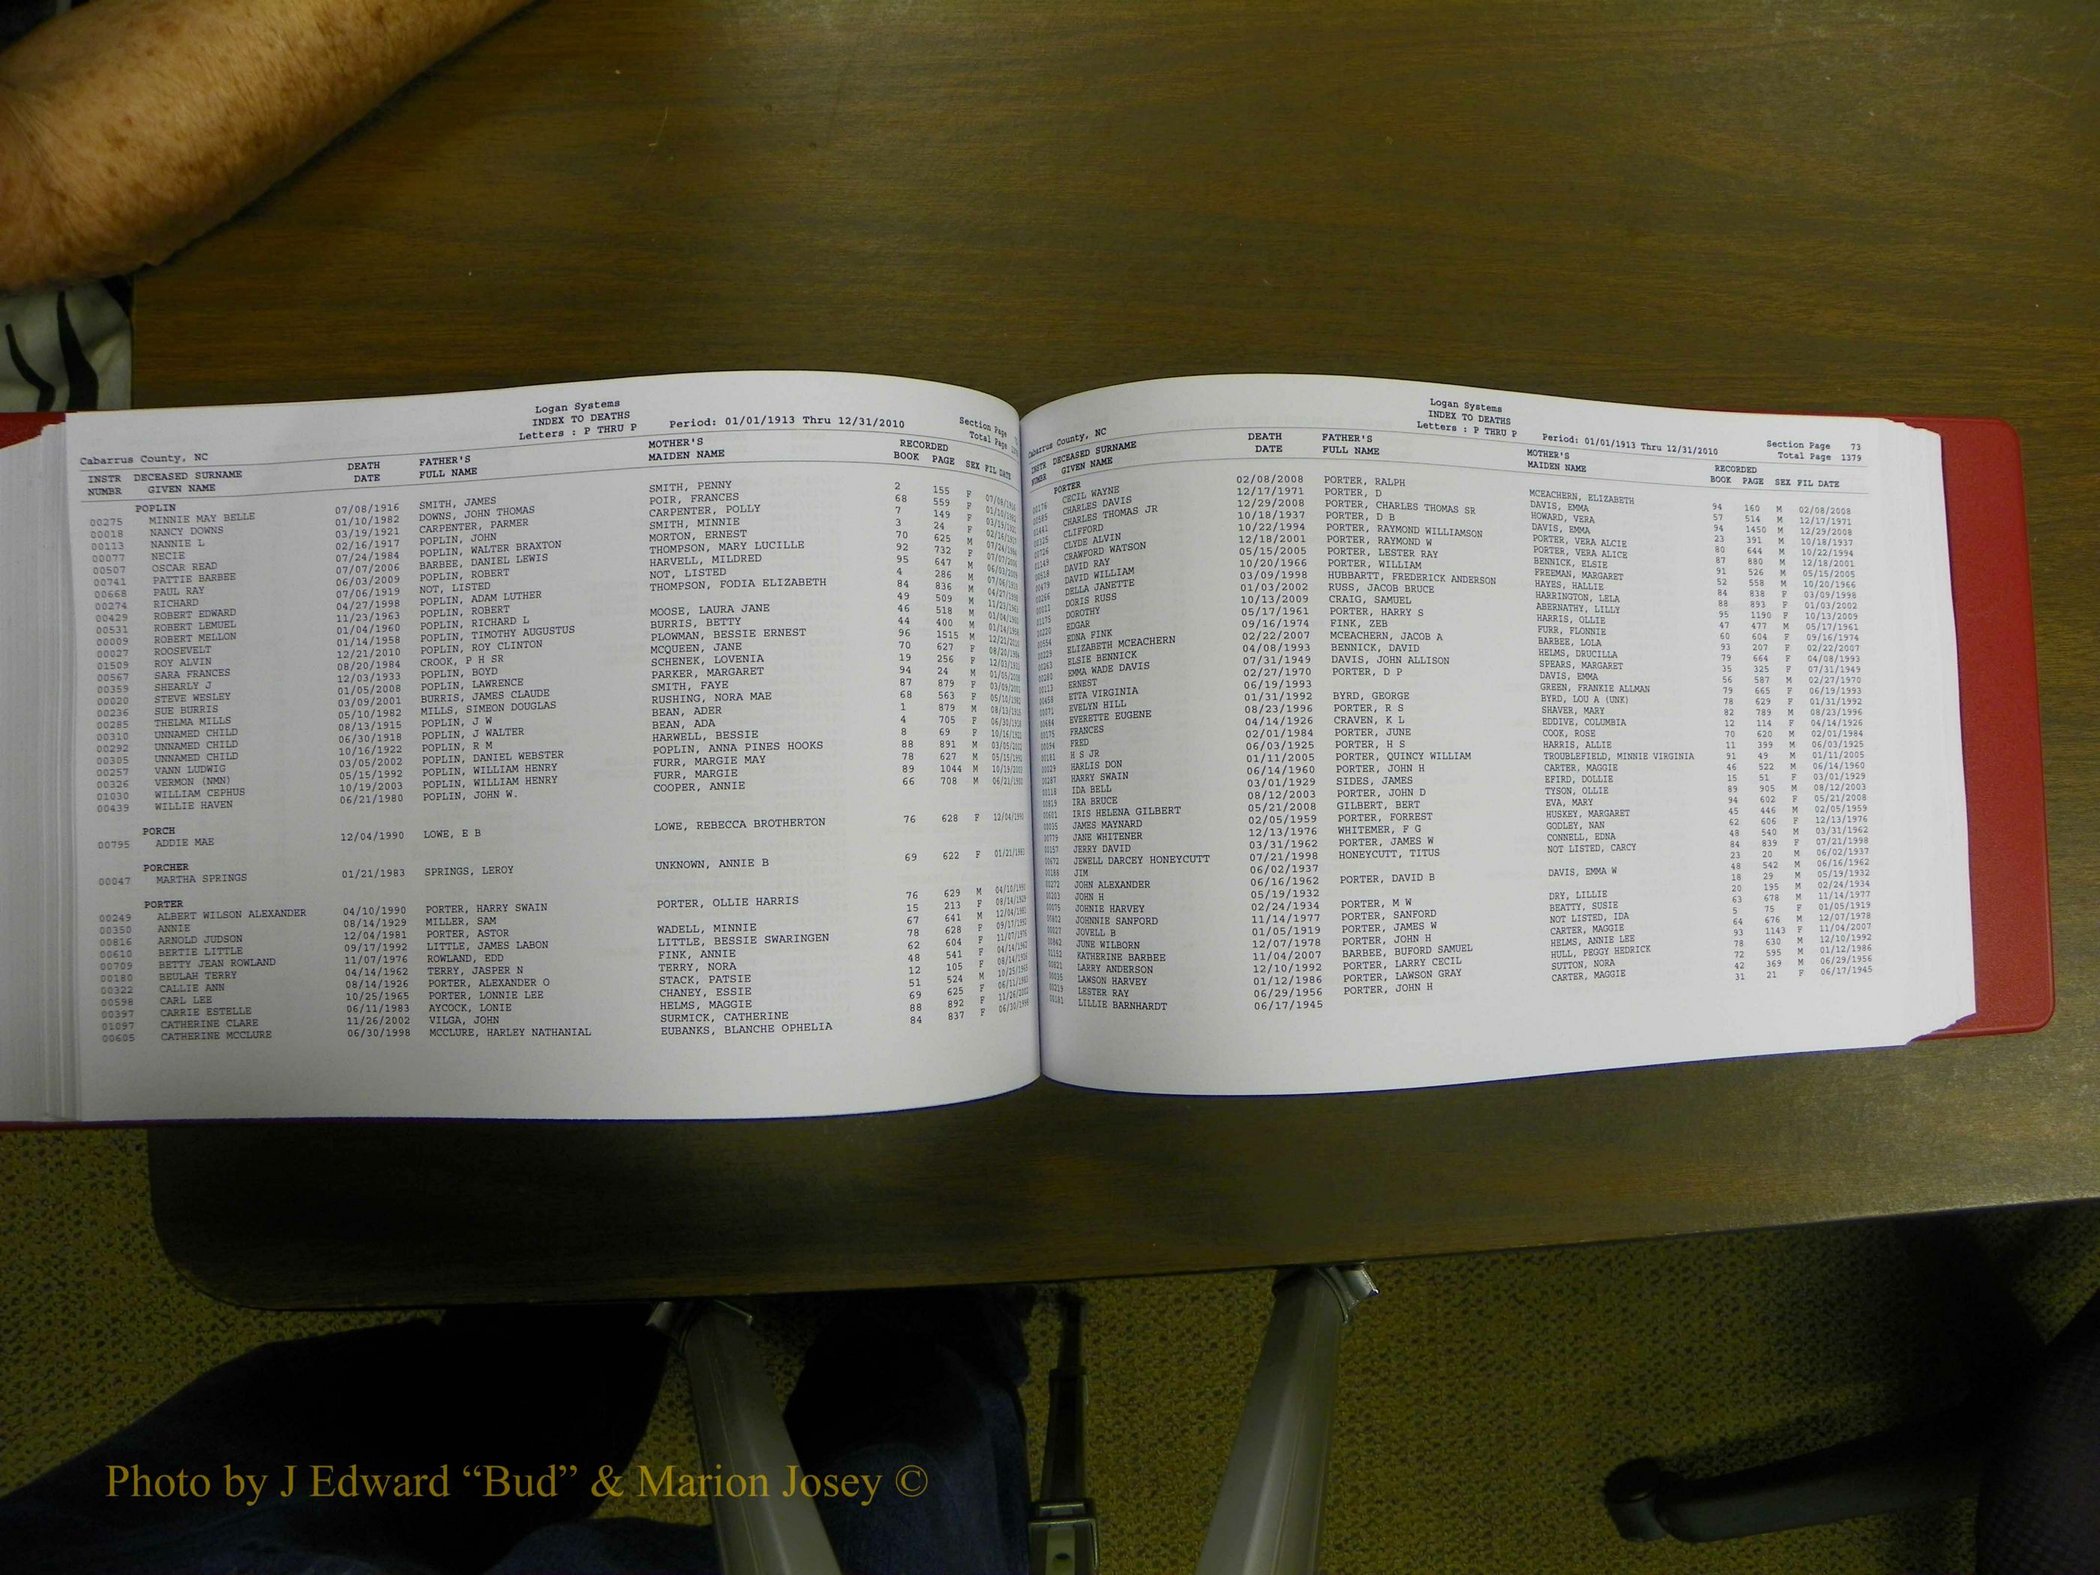 Logan Systems
INDEX TO DEATHS
Cabarrus County, NC Letters : P THRU P Period: 01/01/1913 Thru 12/31/2010 Section Page
Total Page
INSTR NUMBR DECEASED SURNAME GIVEN NAME DEATH DATE FATHER'S FULL NAME MOTHER'S MAIDEN NAME RECORDED BOOK PAGE SEX FIL DATE
POPLIN
00275 MINNIE MAY BELLE 07/08/1916 SMITH, JAMES SMITH, PENNY 2 155 F 07/08/1916
00018 NANCY DOWNS 01/10/1982 DOWNS, JOHN THOMAS POIR, FRANCES 68 559 F 01/10/1982
00113 NANNIE L 03/19/1921 CARPENTER, PARMER CARPENTER, POLLY 7 149 F 03/19/1921
00077 NECIE 02/16/1917 POPLIN, JOHN SMITH, MINNIE 3 24 F 02/16/1917
00507 OSCAR READ 07/24/1984 POPLIN, WALTER BRAXTON MORTON, ERNEST 70 625 M 07/24/1984
00741 PATTIE BARBEE 07/07/2006 BARBEE, DANIEL LEWIS THOMPSON, MARY LUCILLE 92 732 F 07/07/2006
00668 PAUL RAY 06/03/2009 POPLIN, ROBERT HARVELL, MILDRED 95 647 M 06/03/2009
00274 RICHARD 07/06/1919 NOT, LISTED NOT, LISTED 4 286 M 07/06/1919
00429 ROBERT EDWARD 04/27/1998 POPLIN, ADAM LUTHER THOMPSON, FODIA ELIZABETH 84 836 M 04/27/1998
00531 ROBERT LEMUEL 11/23/1963 POPLIN, ROBERT 49 509 M 11/23/1963
00009 ROBERT MELLON 01/04/1960 POPLIN, RICHARD L MOOSE, LAURA JANE 46 518 M 01/04/1960
00027 ROOSEVELT 01/14/1958 POPLIN, TIMOTHY AUGUSTUS BURRIS, BETTY 44 400 M 01/14/1958
01509 ROY ALVIN 12/21/2010 POPLIN, ROY CLINTON PLOWMAN, BESSIE ERNEST 96 1515 M 12/21/2010
00567 SARA FRANCES 08/20/1984 CROOK, P H SR MCQUEEN, JANE 70 627 F 08/20/1984
00359 SHEARLY J 12/03/1933 POPLIN, BOYD SCHENEK, LOVENIA 19 256 F 12/03/1933
00020 STEVE WESLEY 01/05/2008 POPLIN, LAWRENCE PARKER, MARGARET 94 24 M 01/05/2008
00236 SUE BURRIS 03/09/2001 BURRIS, JAMES CLAUDE SMITH, FAYE 87 879 F 03/09/2001
00285 THELMA MILLS 05/10/1982 MILLS, SIMEON DOUGLAS RUSHING, NORA MAE 68 563 F 05/10/1982
00310 UNNAMED CHILD 08/13/1915 POPLIN, J W BEAN, ADER 1 879 M 08/13/1915
00292 UNNAMED CHILD 06/30/1918 POPLIN, J WALTER BEAN, ADA 4 705 F 06/30/1918
00305 UNNAMED CHILD 10/16/1922 POPLIN, R M HARWELL, BESSIE 8 69 F 10/16/1922
00257 VANN LUDWIG 03/05/2002 POPLIN, DANIEL WEBSTER POPLIN, ANNA PINES HOOKS 88 891 M 03/05/2002
00326 VERMON (NMN) 05/15/1992 POPLIN, WILLIAM HENRY FURR, MARGIE MAY 78 627 M 05/15/1992
01030 WILLIAM CEPHUS 10/19/2003 POPLIN, WILLIAM HENRY FURR, MARGIE 89 1044 M 10/19/2003
00439 WILLIE HAVEN 06/21/1980 POPLIN, JOHN W. COOPER, ANNIE 66 708 M 06/21/1980
PORCH
00795 ADDIE MAE 12/04/1990 LOWE, E B LOWE, REBECCA BROTHERTON 76 628 F 12/04/1990
PORCHER
00047 MARTHA SPRINGS 01/21/1983 SPRINGS, LEROY UNKNOWN, ANNIE B 69 622 F 01/21/1983
PORTER
00249 ALBERT WILSON ALEXANDER 04/10/1990 PORTER, HARRY SWAIN PORTER, OLLIE HARRIS 76 629 M 04/10/1990
00350 ANNIE 08/14/1929 MILLER, SAM 15 213 F 08/14/1929
00816 ARNOLD JUDSON 12/04/1981 PORTER, ASTOR WADELL, MINNIE 67 641 M 12/04/1981
00610 BERTIE LITTLE 09/17/1992 LITTLE, JAMES LABON LITTLE, BESSIE SWARINGEN 78 628 F 09/17/1992
00709 BETTY JEAN ROWLAND 11/07/1976 ROWLAND, EDD FINK, ANNIE 62 604 F 11/07/1976
00180 BEULAH TERRY 04/14/1962 TERRY, JASPER N TERRY, NORA 48 541 F 04/14/1962
00322 CALLIE ANN 08/14/1926 PORTER, ALEXANDER O STACK, PATSIE 12 105 F 08/14/1926
00598 CARL LEE 10/25/1965 PORTER, LONNIE LEE CHANEY, ESSIE 51 524 M 10/25/1965
00397 CARRIE ESTELLE 06/11/1983 AYCOCK, LONIE HELMS, MAGGIE 69 625 F 06/11/1983
01097 CATHERINE CLARE 11/26/2002 VILGA, JOHN SURMICK, CATHERINE 88 892 F 11/26/2002
00605 CATHERINE MCCLURE 06/30/1998 MCCLURE, HARLEY NATHANIAL EUBANKS, BLANCHE OPHELIA 84 837 F 06/30/1998
Logan Systems
INDEX TO DEATHS
Cabarrus County, NC Letters : P THRU P Period: 01/01/1913 Thru 12/31/2010 Section Page 73
Total Page 1379
INSTR NUMBR DECEASED SURNAME GIVEN NAME DEATH DATE FATHER'S FULL NAME MOTHER'S MAIDEN NAME RECORDED BOOK PAGE SEX FIL DATE
PORTER
CECIL WAYNE 02/08/2008 PORTER, RALPH MCEACHERN, ELIZABETH 94 160 M 02/08/2008
CHARLES DAVIS 12/17/1971 PORTER, D DAVIS, EMMA 57 514 M 12/17/1971
CHARLES THOMAS JR 12/29/2008 PORTER, CHARLES THOMAS SR HOWARD, VERA 94 1450 M 12/29/2008
CLIFFORD 10/18/1937 PORTER, D B DAVIS, EMMA 23 391 M 10/18/1937
CLYDE ALVIN 10/22/1994 PORTER, RAYMOND WILLIAMSON PORTER, VERA ALCIE 80 644 M 10/22/1994
CRAWFORD WATSON 12/18/2001 PORTER, RAYMOND W PORTER, VERA ALICE 87 880 M 12/18/2001
DAVID RAY 05/15/2005 PORTER, LESTER RAY BENNICK, ELSIE 91 526 M 05/15/2005
DAVID WILLIAM 10/20/1966 PORTER, WILLIAM FREEMAN, MARGARET 52 558 M 10/20/1966
DELLA JANETTE 03/09/1998 HUBBARTT, FREDERICK ANDERSON HAYES, HALLIE 84 838 F 03/09/1998
DORIS RUSS 01/03/2002 RUSS, JACOB BRUCE HARRINGTON, LELA 88 893 F 01/03/2002
DOROTHY 10/13/2009 CRAIG, SAMUEL ABERNATHY, LILLY 95 1190 F 10/13/2009
EDGAR 05/17/1961 PORTER, HARRY S HARRIS, OLLIE 47 477 M 05/17/1961
EDNA FINK 09/16/1974 FINK, ZEB FURR, FLONNIE 60 604 F 09/16/1974
ELIZABETH MCEACHERN 02/22/2007 MCEACHERN, JACOB A BARBEE, LOLA 93 207 F 02/22/2007
ELSIE BENNICK 04/08/1993 BENNICK, DAVID HELMS, DRUCILLA 79 664 F 04/08/1993
EMMA WADE DAVIS 07/31/1949 DAVIS, JOHN ALLISON SPEARS, MARGARET 35 325 F 07/31/1949
ERNEST 02/27/1970 PORTER, D P DAVIS, EMMA 56 587 M 02/27/1970
ETTA VIRGINIA 06/19/1993 GREEN, FRANKIE ALLMAN 79 665 F 06/19/1993
EVELYN HILL 01/31/1992 BYRD, GEORGE BYRD, LOU A (UNK) 78 629 F 01/31/1992
EVERETTE EUGENE 08/23/1996 PORTER, R S SHAVER, MARY 82 789 M 08/23/1996
FRANCES 04/14/1926 CRAVEN, K L EDDIVE, COLUMBIA 12 114 F 04/14/1926
FRED 02/01/1984 PORTER, JUNE COOK, ROSE 70 620 M 02/01/1984
H S JR 06/03/1925 PORTER, H S HARRIS, ALLIE 11 399 M 06/03/1925
HARLIS DON 01/11/2005 PORTER, QUINCY WILLIAM TROUBLEFIELD, MINNIE VIRGINIA 91 49 M 01/11/2005
HARRY SWAIN 06/14/1960 PORTER, JOHN H CARTER, MAGGIE 46 522 M 06/14/1960
IDA BELL 03/01/1929 SIDES, JAMES EFIRD, DOLLIE 15 51 F 03/01/1929
IRA BRUCE 08/12/2003 PORTER, JOHN D TYSON, OLLIE 89 905 M 08/12/2003
IRIS HELENA GILBERT 05/21/2008 GILBERT, BERT EVA, MARY 94 602 F 05/21/2008
JAMES MAYNARD 02/05/1959 PORTER, FORREST HUSKEY, MARGARET 45 446 M 02/05/1959
JANE WHITENER 12/13/1976 WHITEMER, F G GODLEY, NAN 62 606 F 12/13/1976
JERRY DAVID 03/31/1962 PORTER, JAMES W CONNELL, EDNA 48 540 M 03/31/1962
JEWELL DARCEY HONEYCUTT 07/21/1998 HONEYCUTT, TITUS NOT LISTED, CARCY 84 839 F 07/21/1998
JIM 06/02/1937 23 20 M 06/02/1937
JOHN ALEXANDER 06/16/1962 PORTER, DAVID B DAVIS, EMMA W 48 542 M 06/16/1962
JOHN H 05/19/1932 18 29 M 05/19/1932
JOHNIE HARVEY 02/24/1934 PORTER, M W DRY, LILLIE 20 195 M 02/24/1934
JOHNNIE SANFORD 11/14/1977 PORTER, SANFORD BEATTY, SUSIE 63 678 M 11/14/1977
JOVELL B 01/05/1919 PORTER, JAMES W NOT LISTED, IDA 5 75 F 01/05/1919
JUNE WILBORN 12/07/1978 PORTER, JOHN H CARTER, MAGGIE 64 676 M 12/07/1978
KATHERINE BARBEE 11/04/2007 BARBEE, BUFORD SAMUEL HELMS, ANNIE LEE 93 1143 F 11/04/2007
LARRY ANDERSON 12/10/1992 PORTER, LARRY CECIL HULL, PEGGY HEDRICK 78 630 M 12/10/1992
LAWSON HARVEY 01/12/1986 PORTER, LAWSON GRAY SUTTON, NORA 72 595 M 01/12/1986
LESTER RAY 06/29/1956 PORTER, JOHN H CARTER, MAGGIE 42 369 M 06/29/1956
LILLIE BARNHARDT 06/17/1945 31 21 F 06/17/1945
Photo by J Edward “Bud” & Marion Josey ©